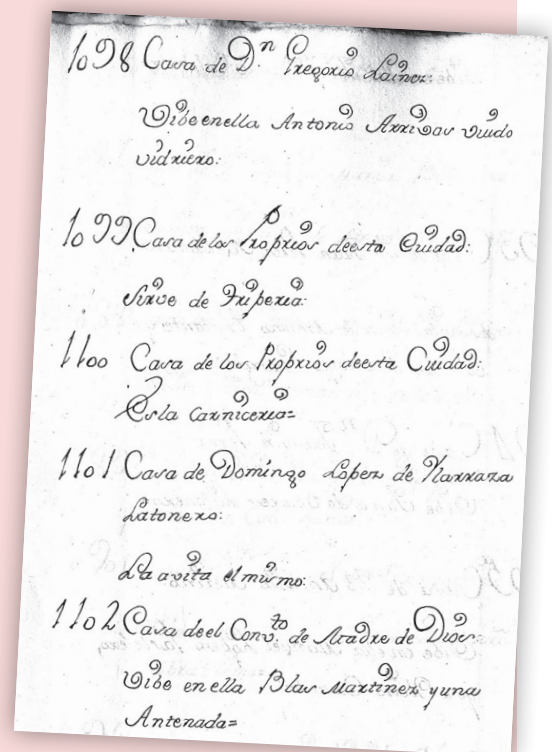 1098 Casa de D.n Gregorio Lainez:
Vibe en ella Antonio Arribas viudo
vidriero:
1099 Casa de los Proprios de esta Ciudad:
Sirve de Triperia:
1100 Casa de los Proprios de esta Ciudad:
Es la Carniceria=
1101 Casa de Domingo Lopez de Narraza
Latonero:
La avita el mismo:
1102 Casa de el Conv.to de Madre de Dios
Vibe en ella Blas Martinez y una
Antenada=